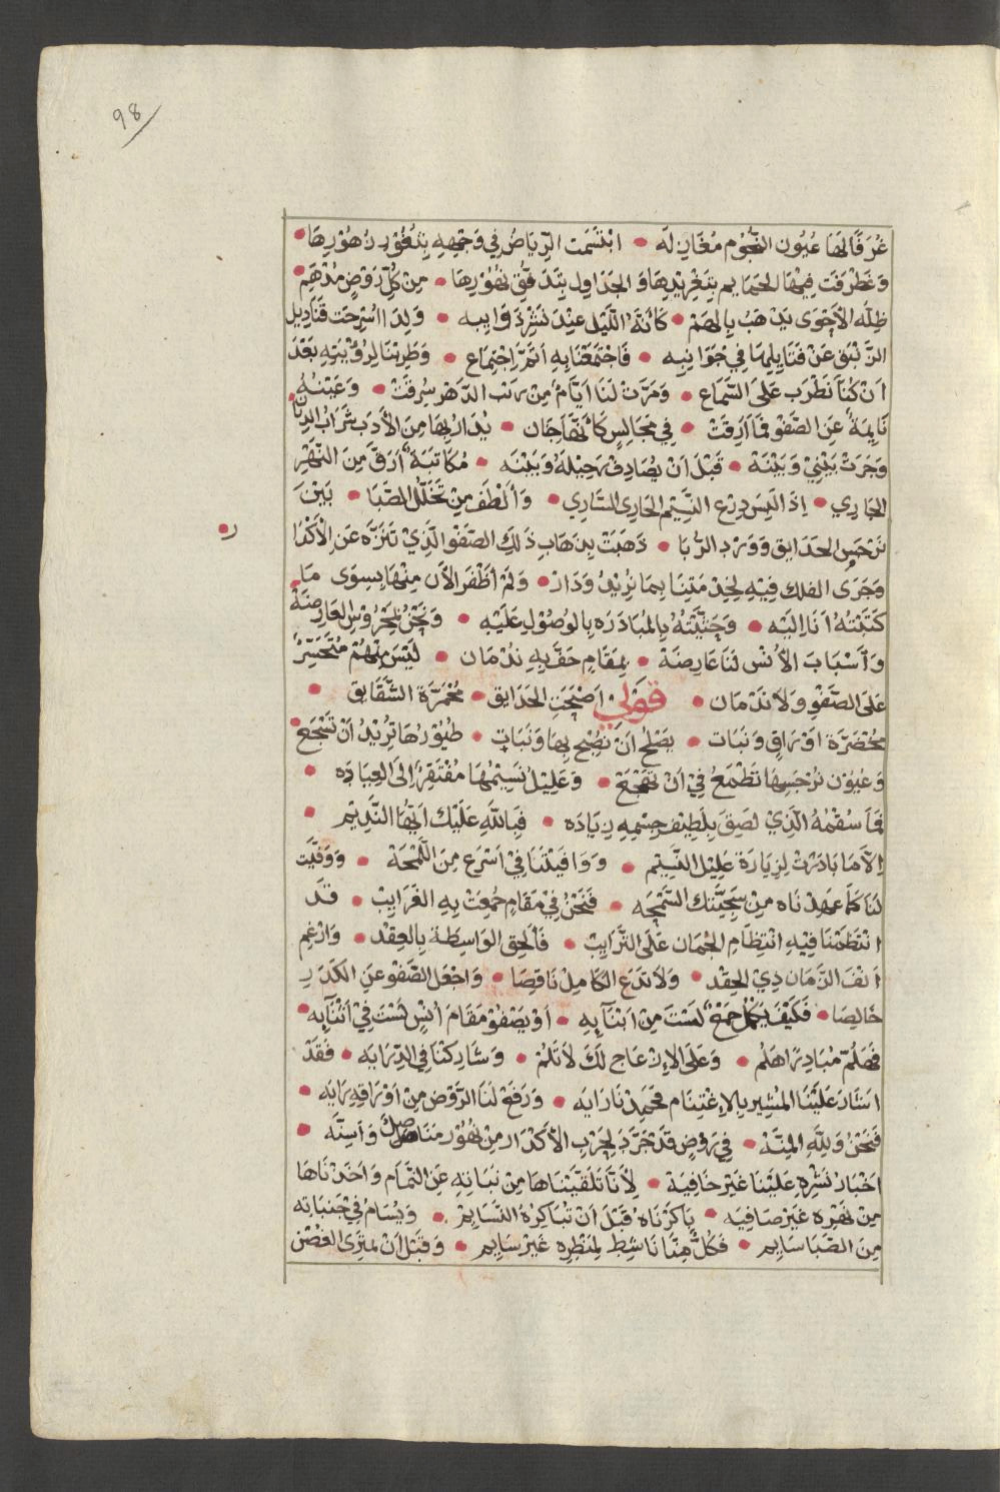 98
غُرَفًا لَهَا عُيُون النُّجُوم مُغَازِلَه • ابْتَسَمَت الرِّيَاضُ فِي وَجْهِهِ بِثُغُوْر زُهُوْرِهَا •
وَغَطْرَفَت فِيْهَا الحَمَايِم بِتَغْرِيْدِهَا وَالجَدَاوِل بِتَدَفُّقِ نُهُوْرِهَا • مِنْ كُلِّ رَوْضٍ مُدْهَم •
ظِلُّه الأَحْوَى يَذْهَبُ بِالهَمّ • كَأَنَّهُ اللَّيْل عِنْدَ نَشْرِ ذَوَايِبِه • وَلِذَا اسْرِجَت قَنَادِيل
الزَّنْبَق عَنْ فَتَايِلِهَا فِي جَوَانِبِه • فَاجْتَمَعْنَا بِهِ اَتَمّ اِجْتِمَاع • وَطَرِبْنَا لِرُؤْيَتِهِ بَعْدَ
اَنْ كُنَّا نَطْرَب عَلَى السَّمَاع • وَمَرَّت لَنَا اَيَّامٌ مِنْ يَدِ الدَّهْر سُرِقَتْ • وَعَيْنُهُ
نَايِمَةٌ عَنِ الصَّفْو فَمَا اَرِقَتْ • فِي مَجَالِسٍ كَاَنَّهَا جَان • يُدَارُ بِهَا مِنَ الأَدَب شَرَابُ الدِّنَان
وَجَرَتْ بَيْنِيْ وَبَيْنَهْ • قَبْلَ اَنْ يُصَادِفَ رَحِيْلَهُ وَبَيْنَه • مُكَاتَبَةٌ اَرَقُّ مِنَ النَّهْرِ
الجَارِي • اِذَا لَبِسَ دِرْع النَّسِيْم الحَارِى السَّارِي • وَأَلْطَف مِنْ تَخَلُّل الصَّبَا • بَيْنَ
نَرْجَسِ الحَدَايق وَوَرْد الرُّبَا • ذَهَبَتْ بِذَهَابِ ذَلِكَ الصَّفْو الَّذِيْ تَنَزَّه عَنِ الأَكْدَا
ر •
وَجَرَى الفلك فِيْهِ لِخِدْمَتِنَا بِمَا نُرِيْدُ وَدَارْ • وَلَمْ أَظْفَر الاَن مِنْهَا بِسِوَى مَا •
كَتَبْتُهُ اَنَا اِلَيْه • وَحَثَّيْتُهُ بِالمُبَادَرَه بِالوُصُوْلِ عَلَيْهِ • وَنَحْنُ بِمَحْرُوْسِ العَارِضَهْ
وَاَسْبَاب الأُنْس لَنَا عَارِضَهْ • بِمَقَامٍ حَفَّ بِهِ نَدْمَان • لَيْسَ مِنْهُمْ مُتَحَسِّرٌ
عَلَى الصَّفْوِ وَلاَ نَدْمَان • قَوْلِي • اَصْبَحَتِ الحَدَايق • مُحْمَرَّة الشَّقَايِق •
مُخْضَرَّة اَوْرَاقٍ وَنَبَات • يَصْلُحُ اَنْ نُصْبِحَ بِهَا وَنَبَات • طُيُوْرُهَا تُرِيْدُ اَنْ تَسْجَع •
وَعُيُوْن نَرْجَسِهَا تَطْمَعُ فِيْ اَنْ تَهْجَعْ • وَعَلِيْلُ نَسِيْمِهَا مُفْتَقِرٌ اِلَى العِيَادَه •
فَمَا سُقْمُهُ الَّذِيْ لَصِقَ بِلَطِيْفِ جِسْمِهِ زِيَادَه • فَبِاللَّهِ عَلَيْك اَيُّهَا النَّدِيْم •
اِلاَّ مَا بَادَرْت لِزِيَارَة عَلِيْل النَّسِيْم • وَوَافَيْتَنَا فِيْ اَسْرَع مِنَ اللَّمْحَة • وَوَفَّيْت
لَنَا كَمَا عَهِدْنَاه مِنْ سَجِيَّتك السَّمْحَه • فَنَحْنُ فِيْ مَقَامٍ جُمِعَتْ بِهِ الغَرَايِبْ • قَد
انْتَظَمْنَا فِيْهِ انْتِظَامِ الجُمَان عَلَى التَّرَايِبْ • فَاَلْحِق الوَاسِطَة بِالعِقْد • وَارْغِم
اَنْفَ الزَّمَان ذِي الحِقْد • وَلاَ تَدَع الكَامِلْ نَاقِصَا • وَاجْعَل الصَّفْو عَنِ الكَدَرِ
خَالِصَا • فَكَيْفَ يَكْمُلُ جَمْعٌ لَسْتَ مِنْ اَبْنَآيِهِ • اَوْ يَصْفُوْ مَقَامَ أُنْسٍ لَسْتَ فِيْ اَثْنَآيِه •
فَهَلُمّ مُبَادِرًا هَلُم • وَعَلَى الاِزْعَاجِ لَكَ لاَ تَلُمْ • وَشَارِكْنَا فِي الدِّرَايَه • فَقَدْ
اَشَارَ عَلَيْنَا المُشِيْر بِالاِغْتِنَام فَحَمِدْنَا رَايَه • وَرَفَعَ لَنَا الرَّوْض مِنْ اَوْرَاقِهِ رَايَه •
فَنَحْنُ وَلِلَّهِ المِنَّهْ • فِي رَوْضٍ قَدْ تَجَرَّدَ لِحَرْبِ الأَكْدَار مِنْ نُهُوْر مَنَاصِلَ وَاَسِنَّه •
اَخْبَارُ نَشْرِهِ عَلَيْنَا غَيْر خَافِيَهْ • لأَنَّا تَلَقَّيْنَاهَا مِنْ نَبَاتِهِ عَنِ النَّمَّام وَاَخَذْنَاهَا
مِنْ نَهْرِهِ غَيْر صَافِيَه • بَاكَرْنَاهُ قَبْلَ اَنْ تُبَاكِرهُ النَّسَايِمْ • وَيُسَامُ فِيْ جَنَبَاتِه
مِنَ الصَّبَا سَايِم • فَكُلٌّ مِنَّا نَاشِط لِمَنْظَرِه غَيْر سَايِم • وَقَبْلَ اَنْ نَرَى الغُصْن